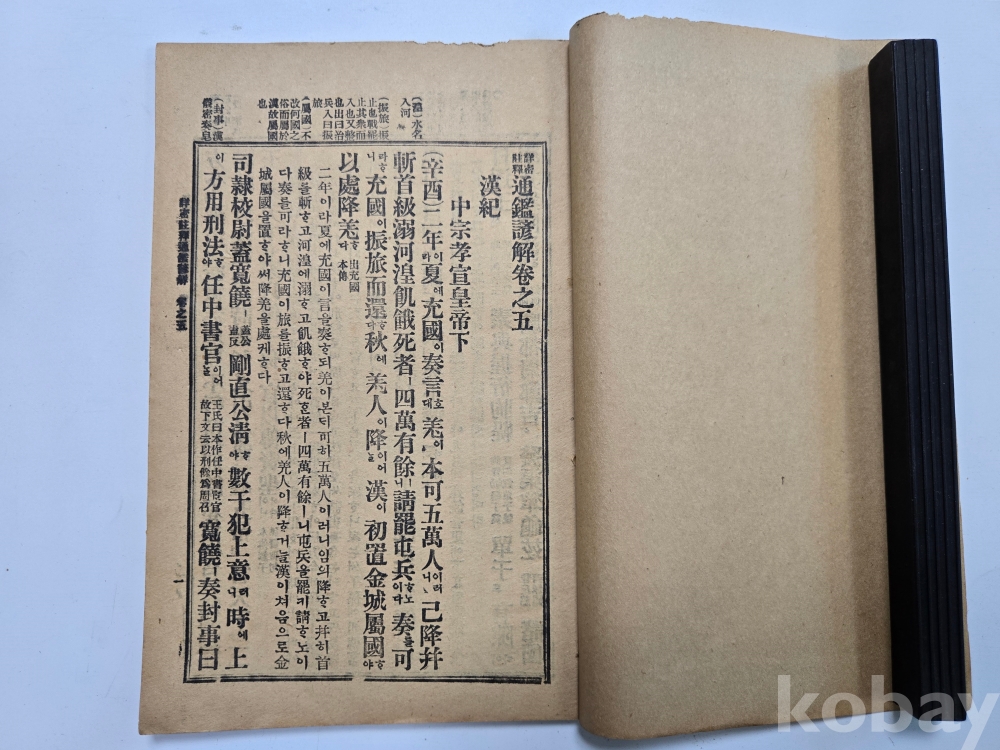 詳密註釋通鑑諺解卷之五
漢紀
中宗孝宣皇帝下
(辛酉)二年이라夏에充國이奏言호대羌이本可五萬人이러니已降幷
斬首級溺河湟飢餓死者ㅣ四萬有餘니請罷屯兵하노이다奏를可
라하니充國이振旅而還하다秋에羌人이降이어늘漢이初置金城屬國하야
以處降羌하다出充國本傳
二年이라夏에充國이言을奏호되羌이본디可히五萬人이러니임의降하고幷히首
級을斬하고河湟에溺하고飢餓하야死한者ㅣ四萬有餘ㅣ니屯兵을罷키請하노이
다奏를可라하니充國이旅를振하고還하다秋에羌人이降하거늘漢이처음으로金
城屬國을置하야써降羌을處케하다
司隷校尉蓋寬饒ㅣ剛直公淸하야數干犯上意러니時에上
이方用刑法하야任中書官이어늘王氏曰本作任中書宦官故下文云以刑餘爲周召寬饒ㅣ奏封事曰
(湟)水名
入河
(振旅)振
止也戰罷
止其衆而
入也又整
也出曰治
兵入曰振
旅
(屬國)不
改何國之
俗而屬於
漢故屬國
也
(封事)漢
儀密奏皂
詳密註釋通鑑諺解 卷之五
一
kobay